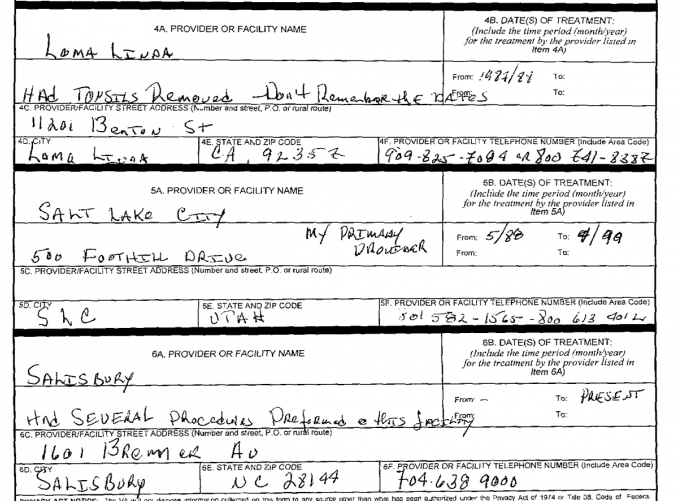 4A. PROVIDER OR FACILITY NAME
LOMA LINDA
4B. DATE(S) OF TREATMENT:
(Include the time period (month/year)
for the treatment by the provider listed in
Item 4A)
From: To:
HAd TONSILS Removed - Don't Remember the DATES
From: To:
4C. PROVIDER/FACILITY STREET ADDRESS (Number and street, P.O. or rural route)
11201 Benton St
4D. CITY
Loma LINDA
4E. STATE AND ZIP CODE
CA, 92357
4F. PROVIDER OR FACILITY TELEPHONE NUMBER (Include Area Code)
909-825-7084 OR 800 741-8387
5A. PROVIDER OR FACILITY NAME
SALT LAKE CITY
MY PRIMARY
PROVIDER
500 FOOTHILL DRIVE
5B. DATE(S) OF TREATMENT:
(Include the time period (month/year)
for the treatment by the provider listed in
Item 5A)
From: 5/88 To: 9/99
From: To:
5C. PROVIDER/FACILITY STREET ADDRESS (Number and street, P.O. or rural route)
5D. CITY
SLC
5E. STATE AND ZIP CODE
UTAH
5F. PROVIDER OR FACILITY TELEPHONE NUMBER (Include Area Code)
801 582-1565-800 613 4012
6A. PROVIDER OR FACILITY NAME
SALISBURY
6B. DATE(S) OF TREATMENT:
(Include the time period (month/year)
for the treatment by the provider listed in
Item 6A)
From: - To: PRESENT
HAd SEVERAL Procedures Preformed @ this facility
From: To:
6C. PROVIDER/FACILITY STREET ADDRESS (Number and street, P.O. or rural route)
1601 Brenner Av
6D. CITY
SALISBURY
6E. STATE AND ZIP CODE
NC 28144
6F. PROVIDER OR FACILITY TELEPHONE NUMBER (Include Area Code)
704.638 9000
PRIVACY ACT NOTICE: The VA will not disclose information collected on this form to any source other than what has been authorized under the Privacy Act of 1974 or Title 38, Code of Federal